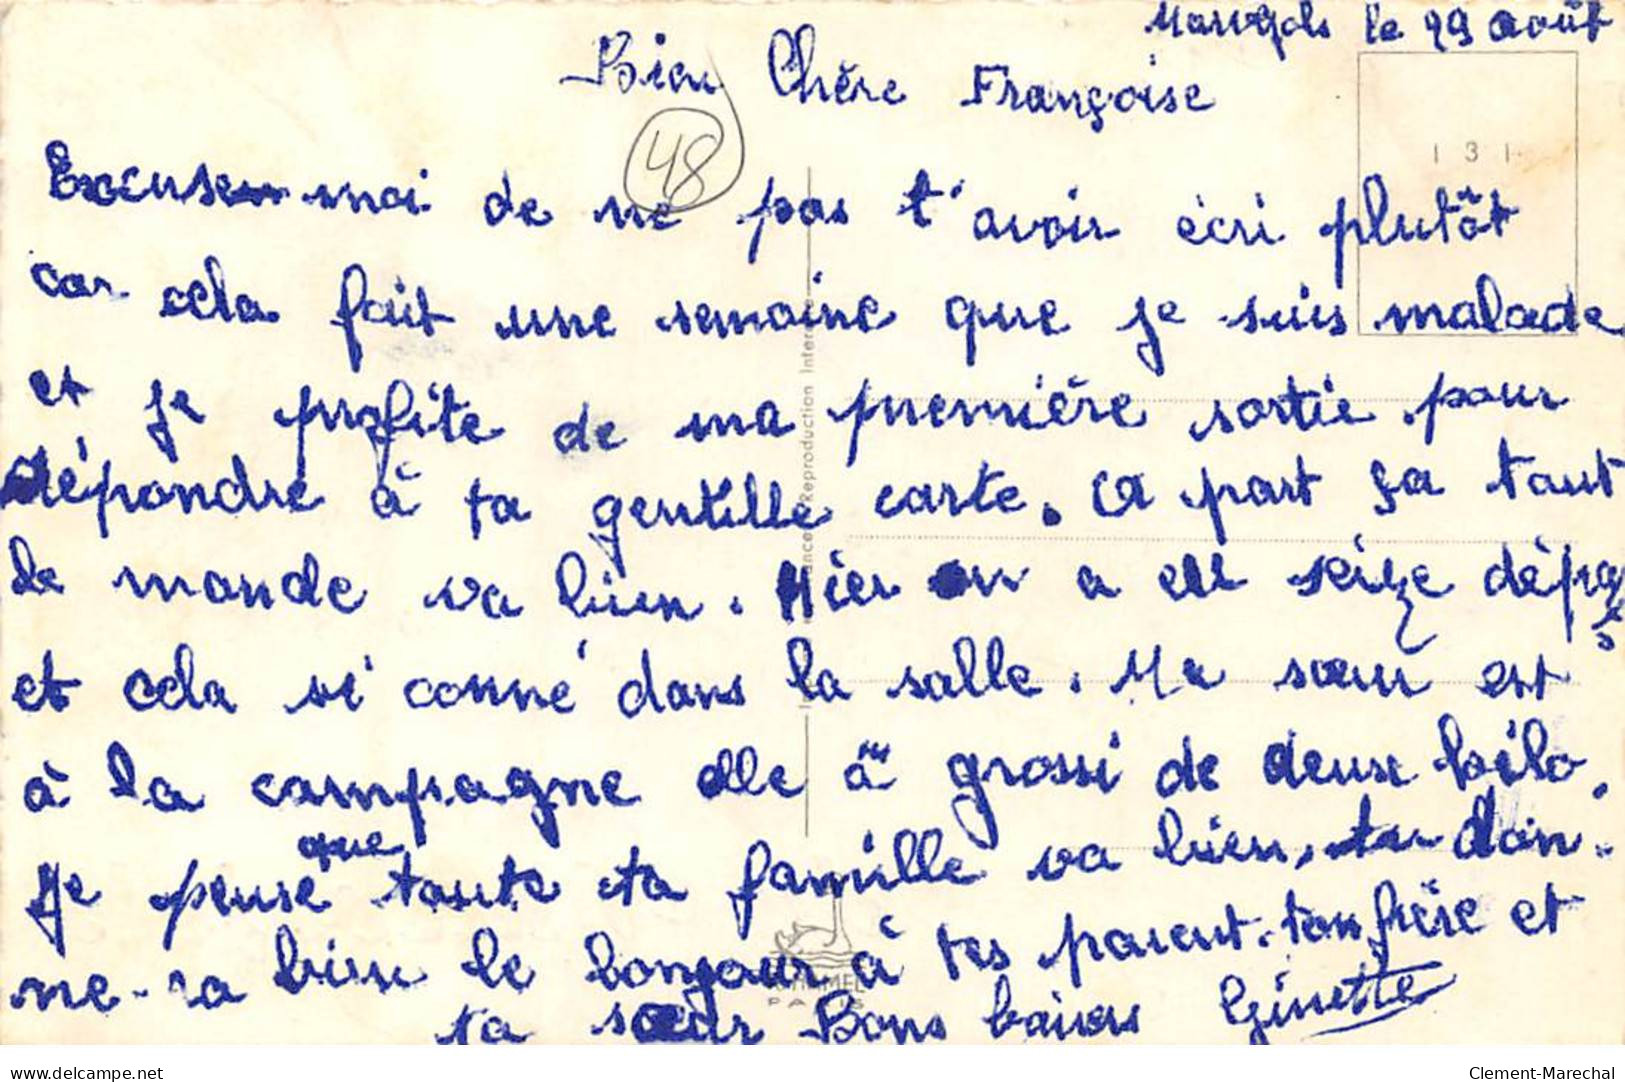 le 29 août
Bien Chère Françoise
48
131
Excuse moi de ne pas t'avoir écri plutôt
car cela fait une semaine que je suis malade
et je profite de ma première sortie pour
répondre à ta gentille carte. A part ça tout
le monde va bien. Hier on a eu seize dépras
et cela si conné dans la salle. Ma sœur est
à la campagne elle à grossi de deux kilo.
Je pense que toute ta famille va bien, tu don-
ne-ra bien le bonjour à tes parent. ton frère et
ta sœur Bons baisers Ginette
Reproduction Inter
PARIS
delcampe.net
Clement-Marechal